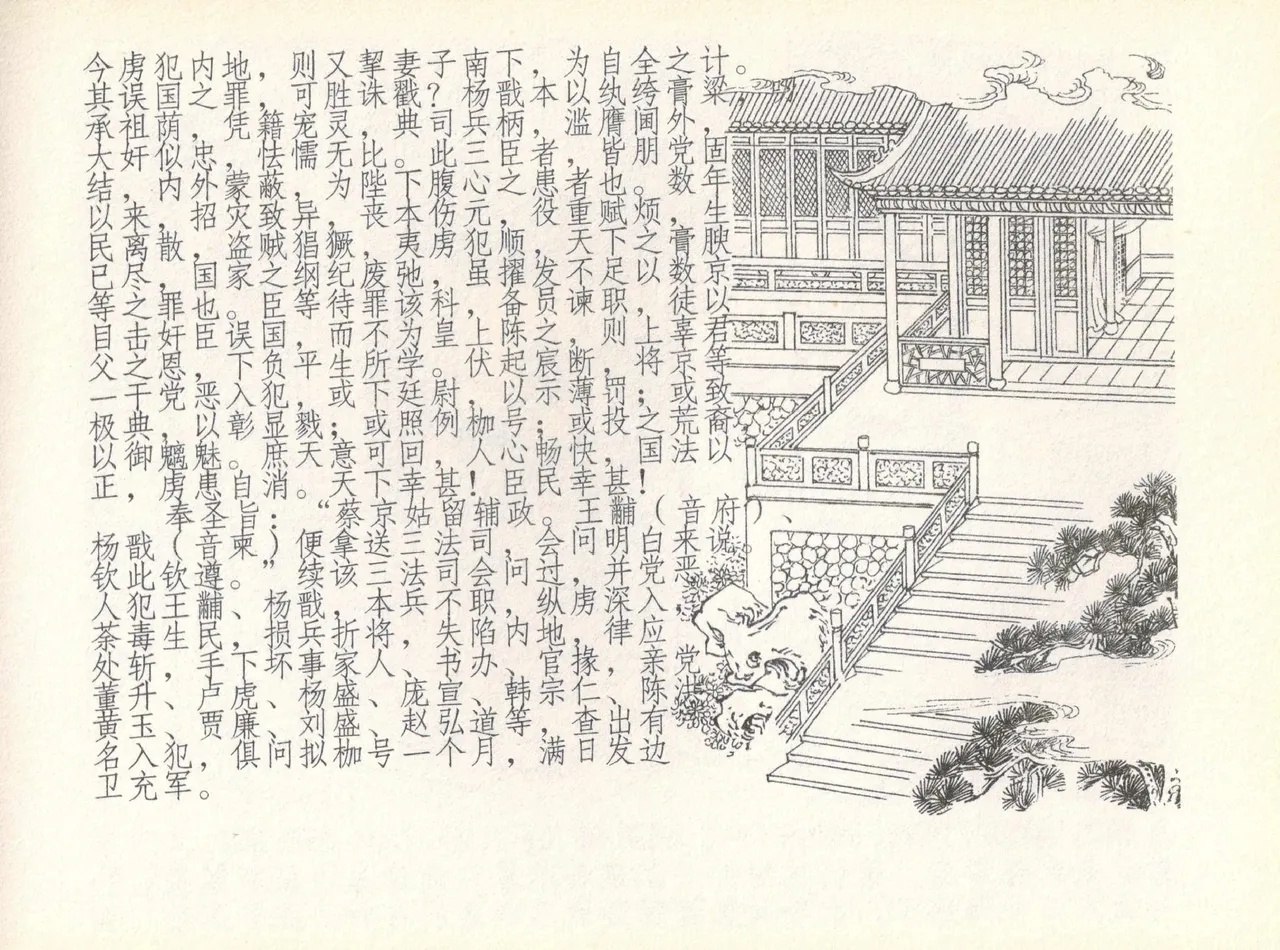 今虏犯内地，则又挈妻子南下，为自全之计。
其误国之罪，可胜诛戮？杨戬本以纨绔膏粱，
承祖荫，凭籍宠灵，典司兵柄，滥膺阃外，
大奸似忠，怯懦无比。此三臣者，皆朋党固
结内外，蒙蔽为陛下腹心之患者也。数年
以来，招灾致异，丧本伤元，役重赋烦，生
民离散，盗贼猖獗，夷虏犯顺，天下之膏腴
已尽，国家之纲纪废弛，虽擢发不足以数京
等之罪也。臣等待罪该科，备员谏职，徒以
自击奸臣误国，而不为皇上陈之，则上辜君
父之恩，下负平生所学。伏起宸断，将京等
一干党恶入犯，或下廷尉，以示薄罚；或致
极典，以彰显戮；或照例枷号；或投之荒裔，
以御魑魅。庶天意可回，人心畅快，国法以
正，虏患自消。天下幸甚！臣民幸甚！
奉圣旨：“蔡京姑留辅政。王黼（音府）、
杨戬（音柬）便拿送三法司，会问明白来说。
钦此钦遵。”续该三法司会问过，并党恶
人犯王黼、杨戬，本兵不职，纵虏深入，
茶毒生民，损兵折将，失陷内地，律应
处斩，手下坏事家人、书办、官掾、亲党
董升、卢虎、杨盛、庞宣、韩宗仁、陈洪、
黄玉、贾廉、刘盛、赵弘道等，查出有
名入犯，俱问拟枷号一个月，满日发边
卫充军。